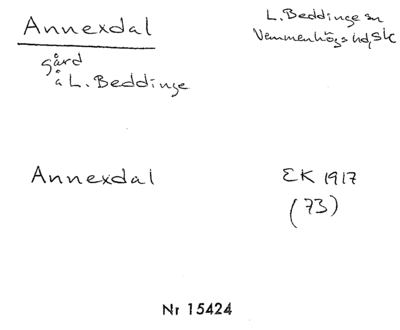 Annexdal
L. Beddinge sn
Vemmenhögs hd, Sk
gård
å L. Beddinge
Annexdal
EK 1917
(73)
Nr 15424